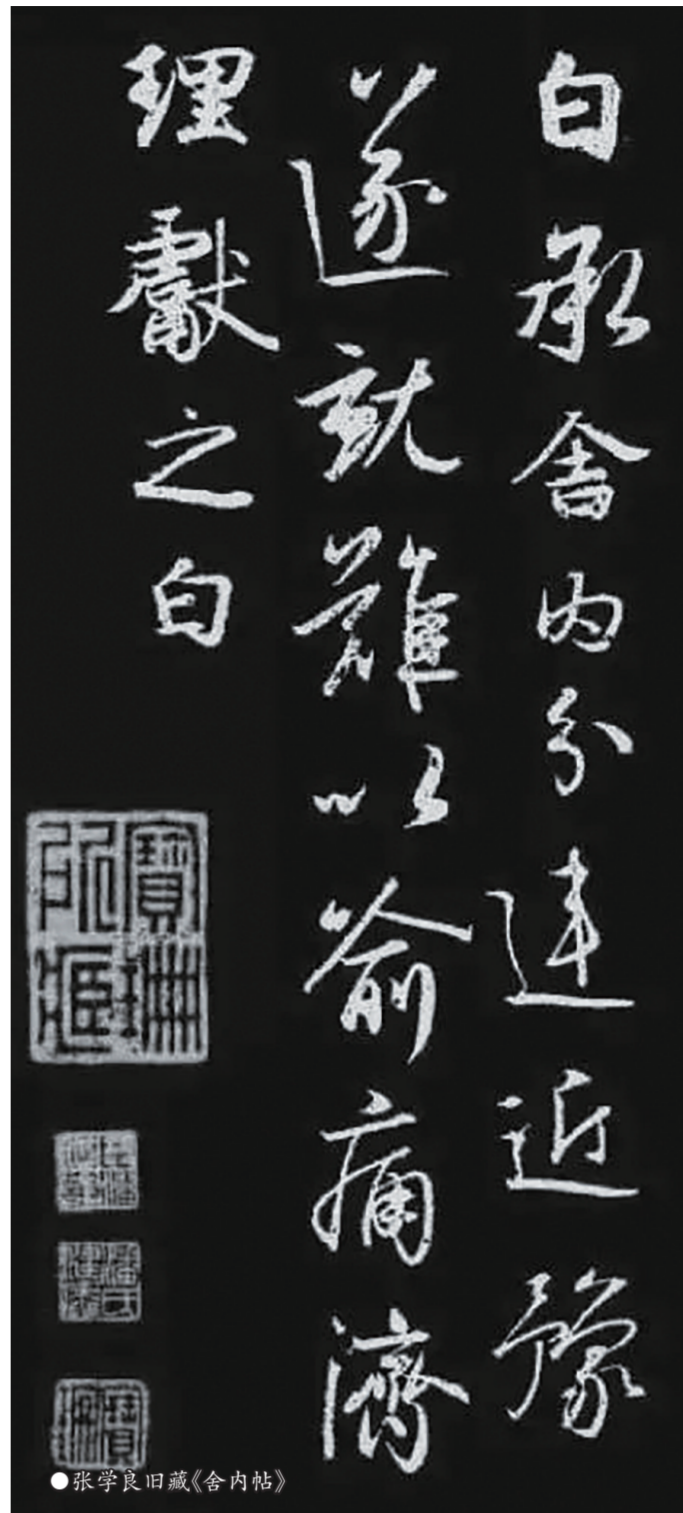 白承舍内分违近豫
遂就难以喻痛济
理獻之白
寶琳
所藏
●张学良旧藏《舍内帖》